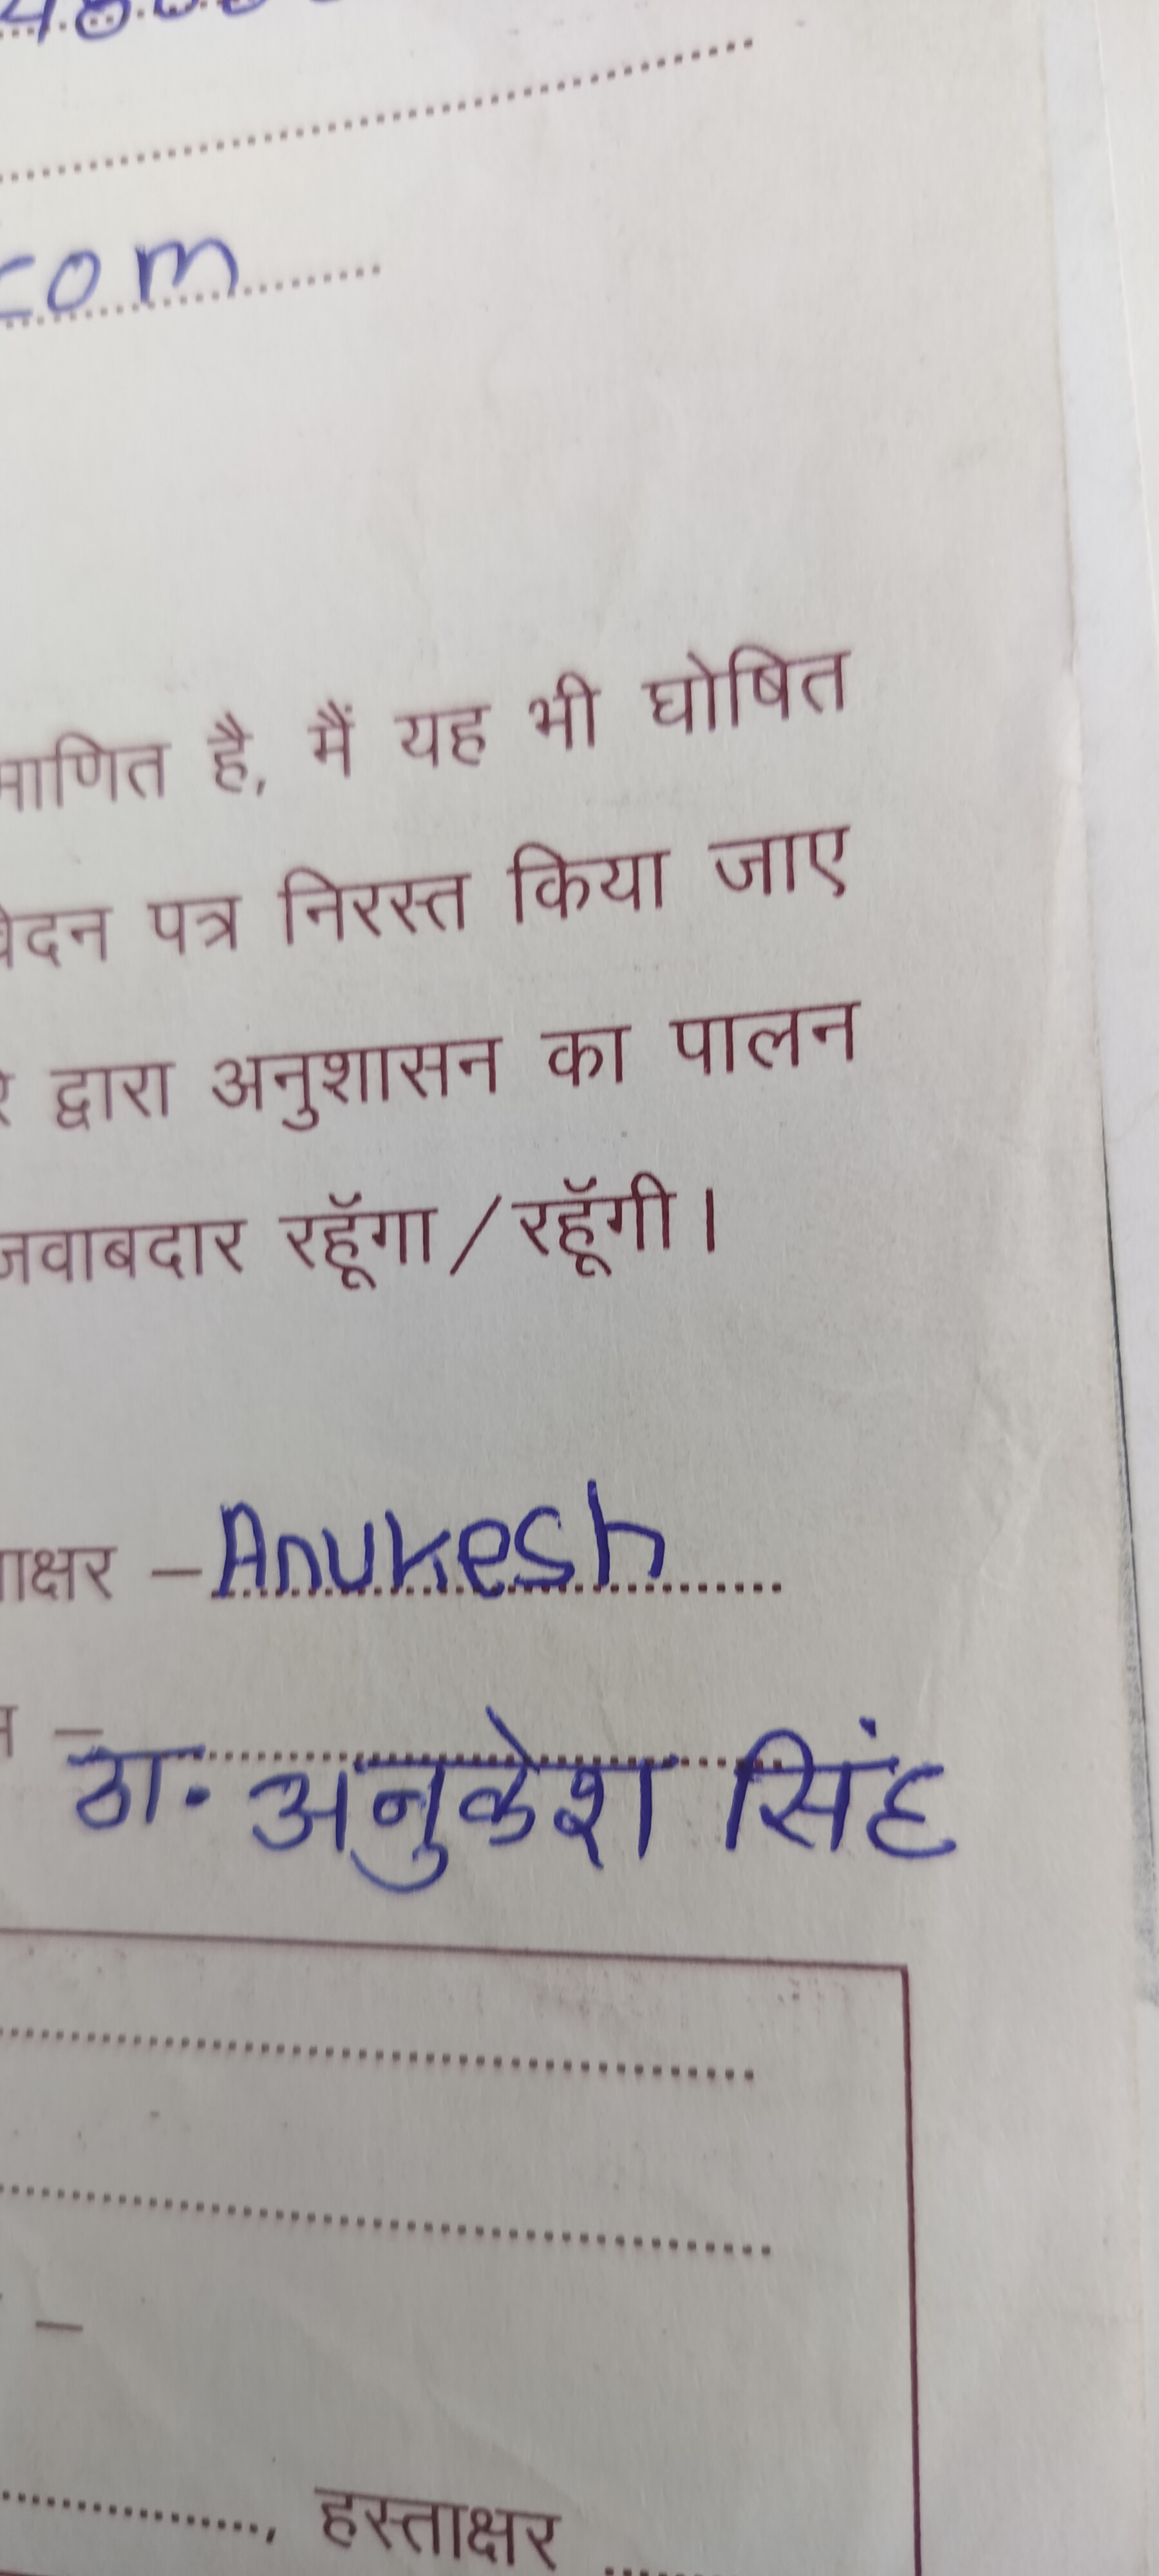 com
है, मैं यह भी घोषित
पत्र निरस्त किया जाए
द्वारा अनुशासन का पालन
जवाबदार रहूँगा / रहूँगी।
– Anukesh
– ठा. अनुकेश सिंह
–
, हस्ताक्षर